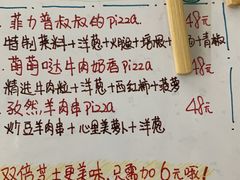 菲力普叔叔的Pizza 48元
特制莱料+洋葱+火腿+培根+ +青椒
萄萄哒牛肉奶香Pizza 48元
精进牛肉粒+洋葱+西红柿+菠萝
3. 孜然羊肉串Pizza 48元
灯豆羊肉串+心里美萝卜+洋葱
双倍芝士更美味，只需加6元哦！